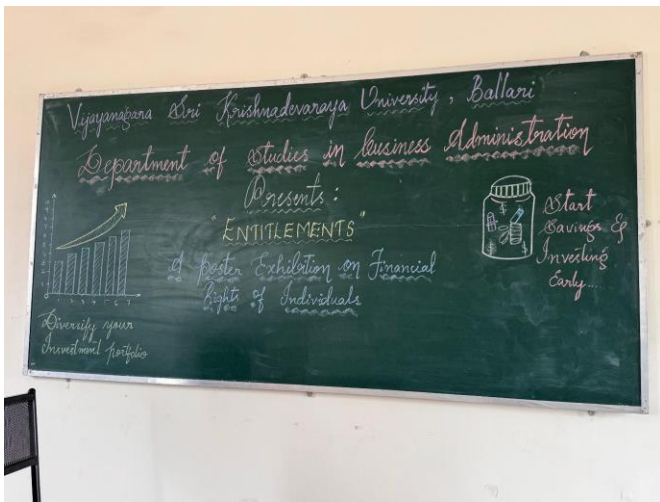 Vijayanagara Sri Krishnadevaraya University, Ballari
Department of studies in business Administration
Presents:
"ENTITLEMENTS"
A poster Exhibition on Financial
Rights of Individuals
Diversify your
Investment portfolio
Start
Savings &
Investing
Early...